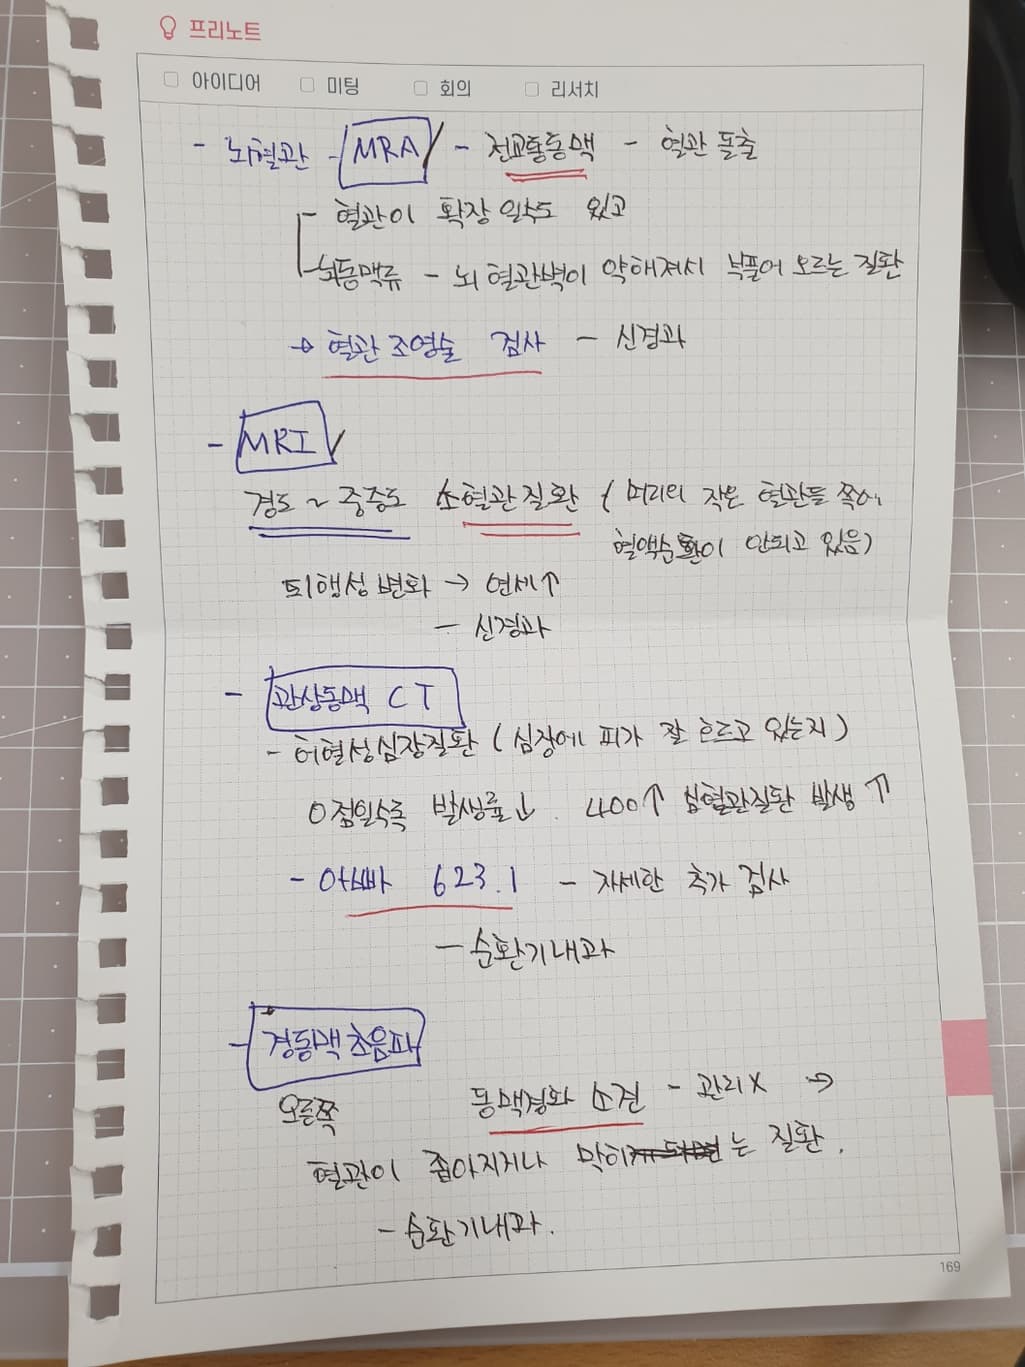 프리노트
아이디어 미팅 회의 리서치
- 뇌혈관 - MRA - 전교통동맥 - 혈관 돌출
- 혈관이 확장 일수도 있고
- 뇌동맥류 - 뇌 혈관벽이 약해져서 부풀어 오르는 질환
→ 혈관 조영술 검사 - 신경과
- MRI
경도 ~ 중증도 소혈관질환 (머리의 작은 혈관들 쪽에
혈액순환이 안되고 있음)
퇴행성 변화 → 연세↑
- 신경과
- 관상동맥 CT
- 허혈성심장질환 (심장에 피가 잘 흐르고 있는지)
0점일수록 발생률↓. 400↑ 심혈관질환 발생↑
- 아빠 623.1 - 자세한 추가 검사
- 순환기내과
- 경동맥 초음파
오른쪽 동맥경화 소견 - 관리X →
혈관이 좁아지거나 막히는 질환.
- 순환기내과.
169